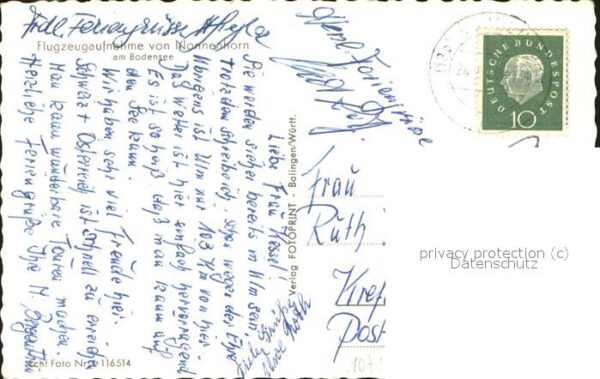 Frdl. Feriengrüsse
Flugzeugaufnahme von Nonnenhorn
am Bodensee
Liebe Frau Kessel!
Sie werden sicher bereits in Ulm sein,
trotzdem schreibe ich, schon wegen der Ehre
Übrigens ist Ulm nur 103 km von hier.
Das Wetter ist hier einfach hervorragend
Es ist so heiß daß man kaum auf
den See kann.
Wir haben sehr viel Freude hier.
Schweiz + Österreich ist schnell zu erreichen
Man kann wunderbare Touren machen.
Herzliche Feriengrüße Ihre H.
Feriengrüße
Viele Grüße
Verlag FOTOPRINT - Balingen/Württ.
Echt Foto Nr. 116514
DEUTSCHE BUNDESPOST
10
Frau
Ruth
Kref
Post
107
privacy protection (c)
Datenschutz